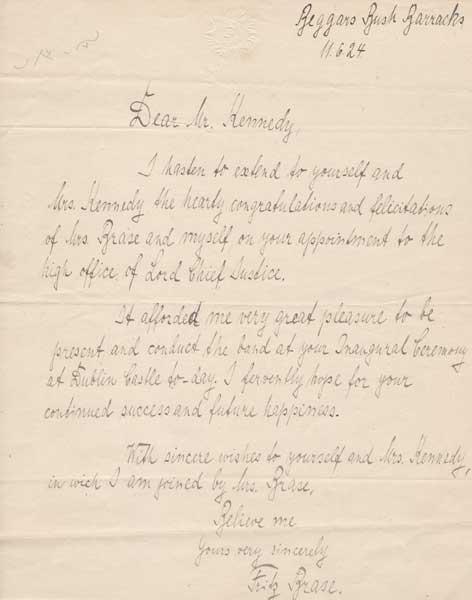 Beggars Bush Barracks
11.6.24
Dear Mr. Kennedy,
I hasten to extend to yourself and
Mrs. Kennedy the hearty congratulations and felicitations
of Mrs. Brase and myself on your appointment to the
high office of Lord Chief Justice.
It afforded me very great pleasure to be
present and conduct the band at your Inaugural Ceremony
at Dublin Castle to-day. I fervently hope for your
continued success and future happiness.
With sincere wishes to yourself and Mrs. Kennedy,
in wich I am joined by Mrs. Brase,
Believe me
Yours very sincerely
Fritz Brase.